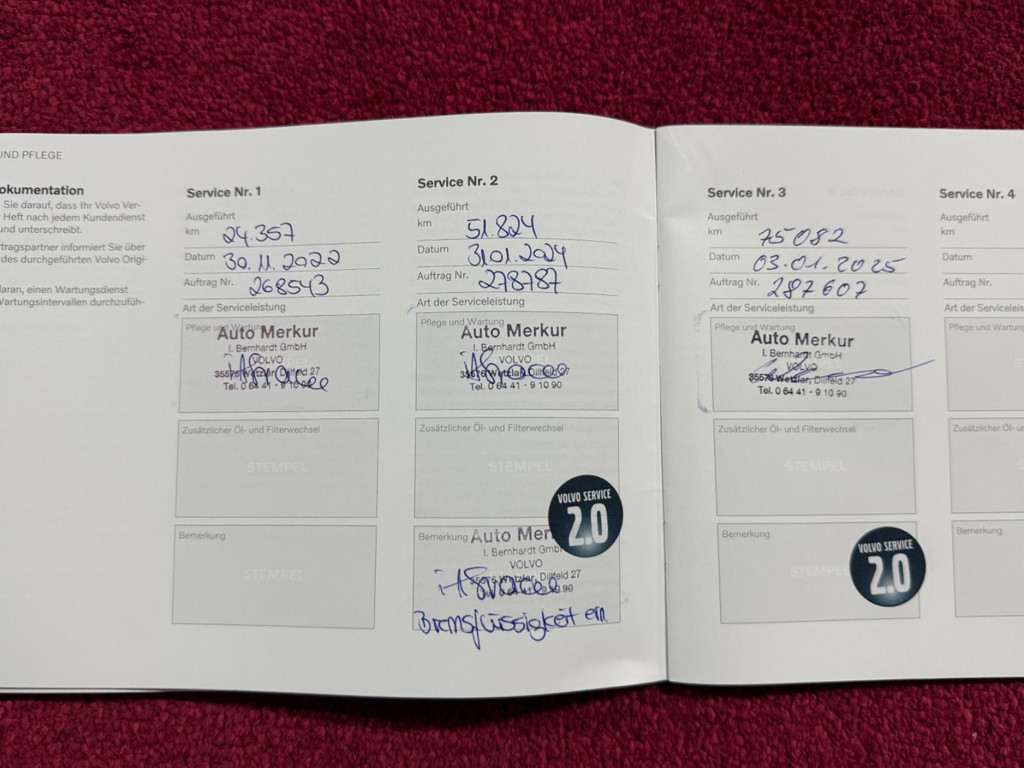 UND PFLEGE
okumentation
Sie darauf, dass Ihr Volvo Ver-
Heft nach jedem Kundendienst
und unterschreibt.
rtragspartner informiert Sie über
des durchgeführten Volvo Origi-
laran, einen Wartungsdienst
Wartungsintervallen durchzufüh-
Service Nr. 1
Ausgeführt
km 24.357
Datum 30.11.2022
Auftrag Nr. 268543
Art der Serviceleistung
Pflege und Wartung
Auto Merkur
I. Bernhardt GmbH
VOLVO
35576 Wetzlar, Dillfeld 27
Tel. 0 64 41 - 9 10 90
Zusätzlicher Öl- und Filterwechsel
STEMPEL
Bemerkung
STEMPEL
Service Nr. 2
Ausgeführt
km 51.824
Datum 31.01.2024
Auftrag Nr. 278787
Art der Serviceleistung
Pflege und Wartung
Auto Merkur
I. Bernhardt GmbH
VOLVO
35576 Wetzlar, Dillfeld 27
Tel. 0 64 41 - 9 10 90
Zusätzlicher Öl- und Filterwechsel
STEMPEL
VOLVO SERVICE
2.0
Bemerkung
Auto Mer
I. Bernhardt GmbH
VOLVO
35576 Wetzlar, Dillfeld 27
Bremsflüssigkeit ern.
Service Nr. 3
Ausgeführt
km 75082
Datum 03.01.2025
Auftrag Nr. 287607
Art der Serviceleistung
Pflege und Wartung
Auto Merkur
I. Bernhardt GmbH
VOLVO
35576 Wetzlar, Dillfeld 27
Tel. 0 64 41 - 9 10 90
Zusätzlicher Öl- und Filterwechsel
STEMPEL
Bemerkung
STEMP
VOLVO SERVICE
2.0
Service Nr. 4
Ausgeführt
km
Datum
Auftrag Nr.
Art der Servicelei
Pflege und Wartu
Zusätzlicher Öl- u
Bemerkung